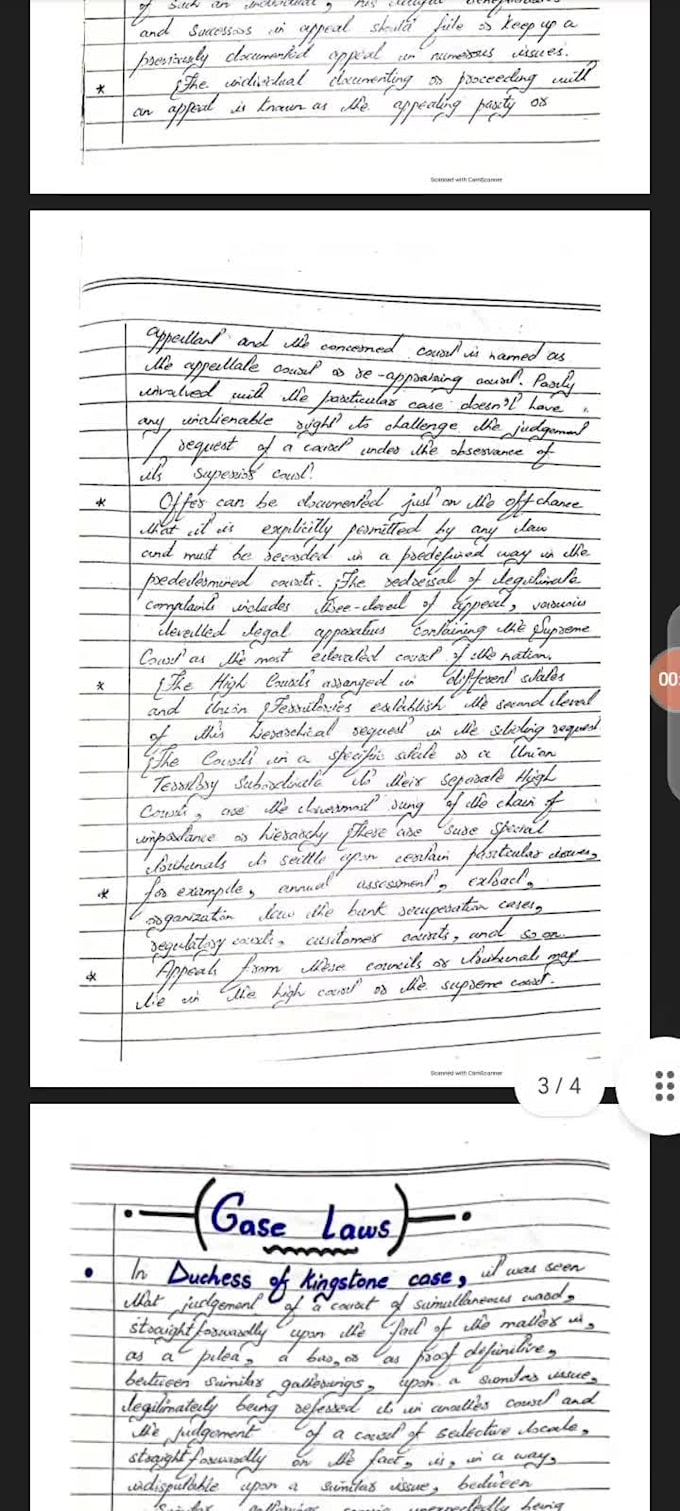 of such an individual, his
and successors in appeal should file or keep up a
previously documented appeal in numerous issues.
* The individual documenting or proceeding with
an appeal is known as the appealing party or
Scanned with CamScanner
appellant and the concerned court is named as
the appellate court or re-appraising court. Party
involved with the particular case doesn't have
any inalienable right to challenge the judgement
/ request of a court under the observance of
its superior court.
* Offer can be documented just on the off chance
that it is explicitly permitted by any law
and must be recorded in a predefined way in the
predetermined courts. The redressal of legitimate
complaints includes three-level of appeal, various
levelled legal apparatus containing the Supreme
Court as the most elevated court of the nation.
* The High Courts arranged in different states
and Union Territories establish the second level
of this hierarchical request in the sliding request
The Courts in a specific state or a Union
Territory Subordinate to their separate High
Courts, are the lowermost rung of the chain of
importance or hierarchy There are sure special
tribunals to settle upon certain particular
* for example, annual assessment,
organization law the bank recuperation cases,
regulatory courts, customer courts, and so on.
* Appeals from these councils or tribunals may
lie in the high court or the supreme court.
Scanned with CamScanner
00:
3 / 4
Case Laws
• In Duchess of Kingstone case, it was seen
that judgement of a court of simultaneous ward,
straightforwardly upon the fact of the matter is,
as a plea, a bar, or as proof definitive,
between similar gatherings, upon a similar issue,
legitimately being referred to in another court and
the judgement of a court of selective locale,
straightforwardly on the fact, is, in a way,
indisputable upon a similar issue, between
similar gatherings unexpectedly being